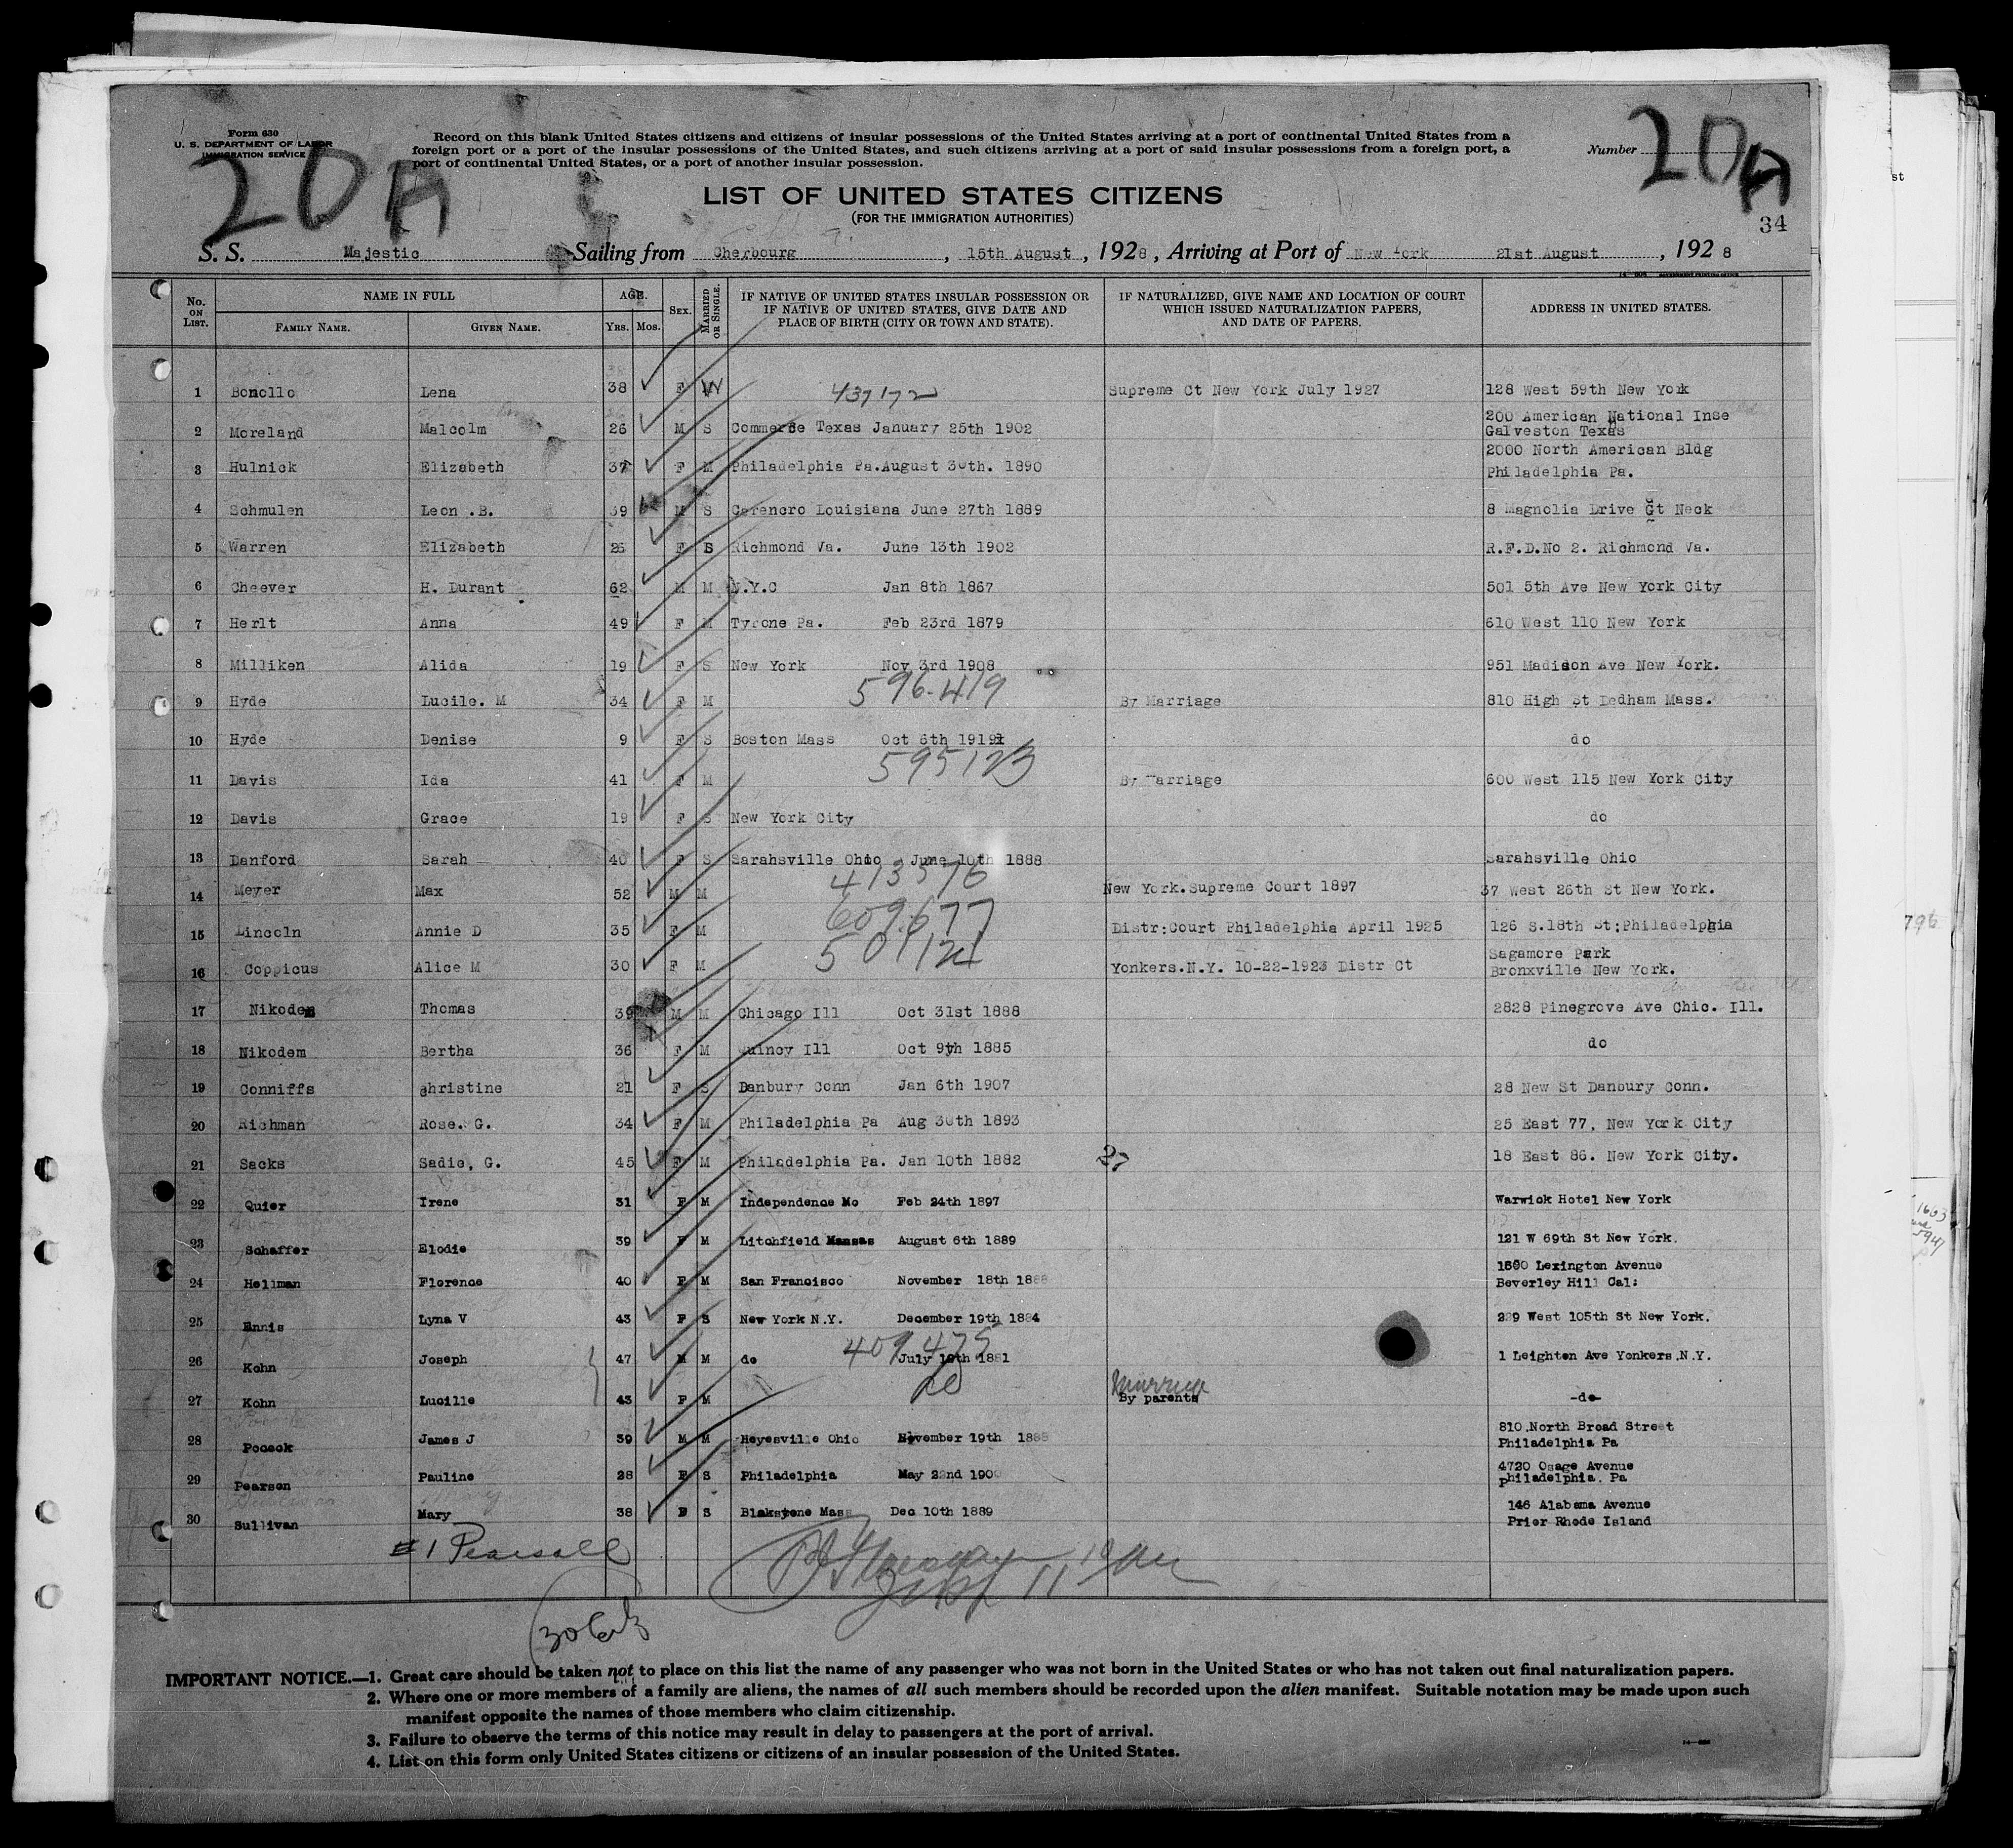 Form 630
U. S. DEPARTMENT OF LABOR
IMMIGRATION SERVICE
20A
Record on this blank United States citizens and citizens of insular possessions of the United States arriving at a port of continental United States from a
foreign port or a port of the insular possessions of the United States, and such citizens arriving at a port of said insular possessions from a foreign port, a
port of continental United States, or a port of another insular possession.
Number 20A
LIST OF UNITED STATES CITIZENS
(FOR THE IMMIGRATION AUTHORITIES)
34
S. S. Majestic Sailing from Cherbourg, 15th August, 1928, Arriving at Port of New York 21st August, 1928
No. ON LIST. NAME IN FULL FAMILY NAME. GIVEN NAME. AGE. Yrs. Mos. SEX. MARRIED OR SINGLE. IF NATIVE OF UNITED STATES INSULAR POSSESSION OR IF NATIVE OF UNITED STATES, GIVE DATE AND PLACE OF BIRTH (CITY OR TOWN AND STATE). IF NATURALIZED, GIVE NAME AND LOCATION OF COURT WHICH ISSUED NATURALIZATION PAPERS, AND DATE OF PAPERS. ADDRESS IN UNITED STATES.
1 Bonollo Lena 38 F W 437172 Supreme Ct New York July 1927 128 West 59th New York
2 Moreland Malcolm 26 M S Commerce Texas January 25th 1902 200 American National Inse
Galveston Texas
3 Hulnick Elizabeth 37 F M Philadelphia Pa.August 30th. 1890 2000 North American Bldg
Philadelphia Pa.
4 Schmulen Leon .B. 39 M S Carencro Louisiana June 27th 1889 8 Magnolia Drive Gt Neck
5 Warren Elizabeth 26 F S Richmond Va. June 13th 1902 R.F.D.No 2. Richmond Va.
6 Cheever H. Durant 62 M M N.Y.C Jan 8th 1867 501 5th Ave New York City
7 Herlt Anna 49 F M Tyrone Pa. Feb 23rd 1879 610 West 110 New York
8 Milliken Alida 19 F S New York Nov 3rd 1908 951 Madison Ave New York.
9 Hyde Lucile. M 34 F M 596-419 By Marriage 810 High St Dedham Mass.
10 Hyde Denise 9 F S Boston Mass Oct 6th 1919 do
11 Davis Ida 41 F M 595123 By Marriage 600 West 115 New York City
12 Davis Grace 19 F S New York City do
13 Danford Sarah 40 F S Sarahsville Ohio June 10th 1888 Sarahsville Ohio
14 Meyer Max 52 M M 413576 New York.Supreme Court 1897 37 West 26th St New York.
15 Lincoln Annie D 35 F M 609.677 Distr:Court Philadelphia April 1925 126 S.18th St:Philadelphia
16 Coppicus Alice M 30 F M Yonkers.N.Y. 10-22-1923 Distr Ct Sagamore Park
Bronxville New York.
17 Nikodem Thomas 39 M M Chicago Ill Oct 31st 1888 2828 Pinegrove Ave Chic. Ill.
18 Nikodem Bertha 36 F M Quincy Ill Oct 9th 1885 do
19 Conniffs Christine 21 F S Danbury Conn Jan 6th 1907 28 New St Danbury Conn.
20 Richman Rose. G. 34 F M Philadelphia Pa Aug 30th 1893 25 East 77, New York City
21 Sacks Sadie, G. 45 F M Philadelphia Pa. Jan 10th 1882 18 East 86. New York City.
22 Quier Irene 31 F M Independence Mo Feb 24th 1897 Warwick Hotel New York
23 Schaffer Elodie 39 F M Litchfield Kansas August 6th 1889 121 W 69th St New York.
24 Hellman Florence 40 F M San Francisco November 18th 1888 Lexington Avenue
Beverley Hill Cal:
25 Ennis Lyna V 43 F S New York N.Y. December 19th 1884 229 West 105th St New York.
26 Kohn Joseph 47 M M do 409475 July 19th 1881 1 Leighton Ave Yonkers.N.Y.
27 Kohn Lucille 43 F M do Marriage By parents -do-
28 Pocock James J 39 M M Heyesville Ohio November 19th 1888 810.North Broad Street
Philadelphia Pa
29 Pearson Pauline 28 F S Philadelphia May 22nd 1900 4720 Osage Avenue
Philadelphia. Pa
30 Sullivan Mary 38 F S Blakstone Mass Dec 10th 1889 146 Alabama Avenue
Prior Rhode Island
#1 Pearsall
IMPORTANT NOTICE.—1. Great care should be taken not to place on this list the name of any passenger who was not born in the United States or who has not taken out final naturalization papers.
2. Where one or more members of a family are aliens, the names of all such members should be recorded upon the alien manifest. Suitable notation may be made upon such
manifest opposite the names of those members who claim citizenship.
3. Failure to observe the terms of this notice may result in delay to passengers at the port of arrival.
4. List on this form only United States citizens or citizens of an insular possession of the United States.